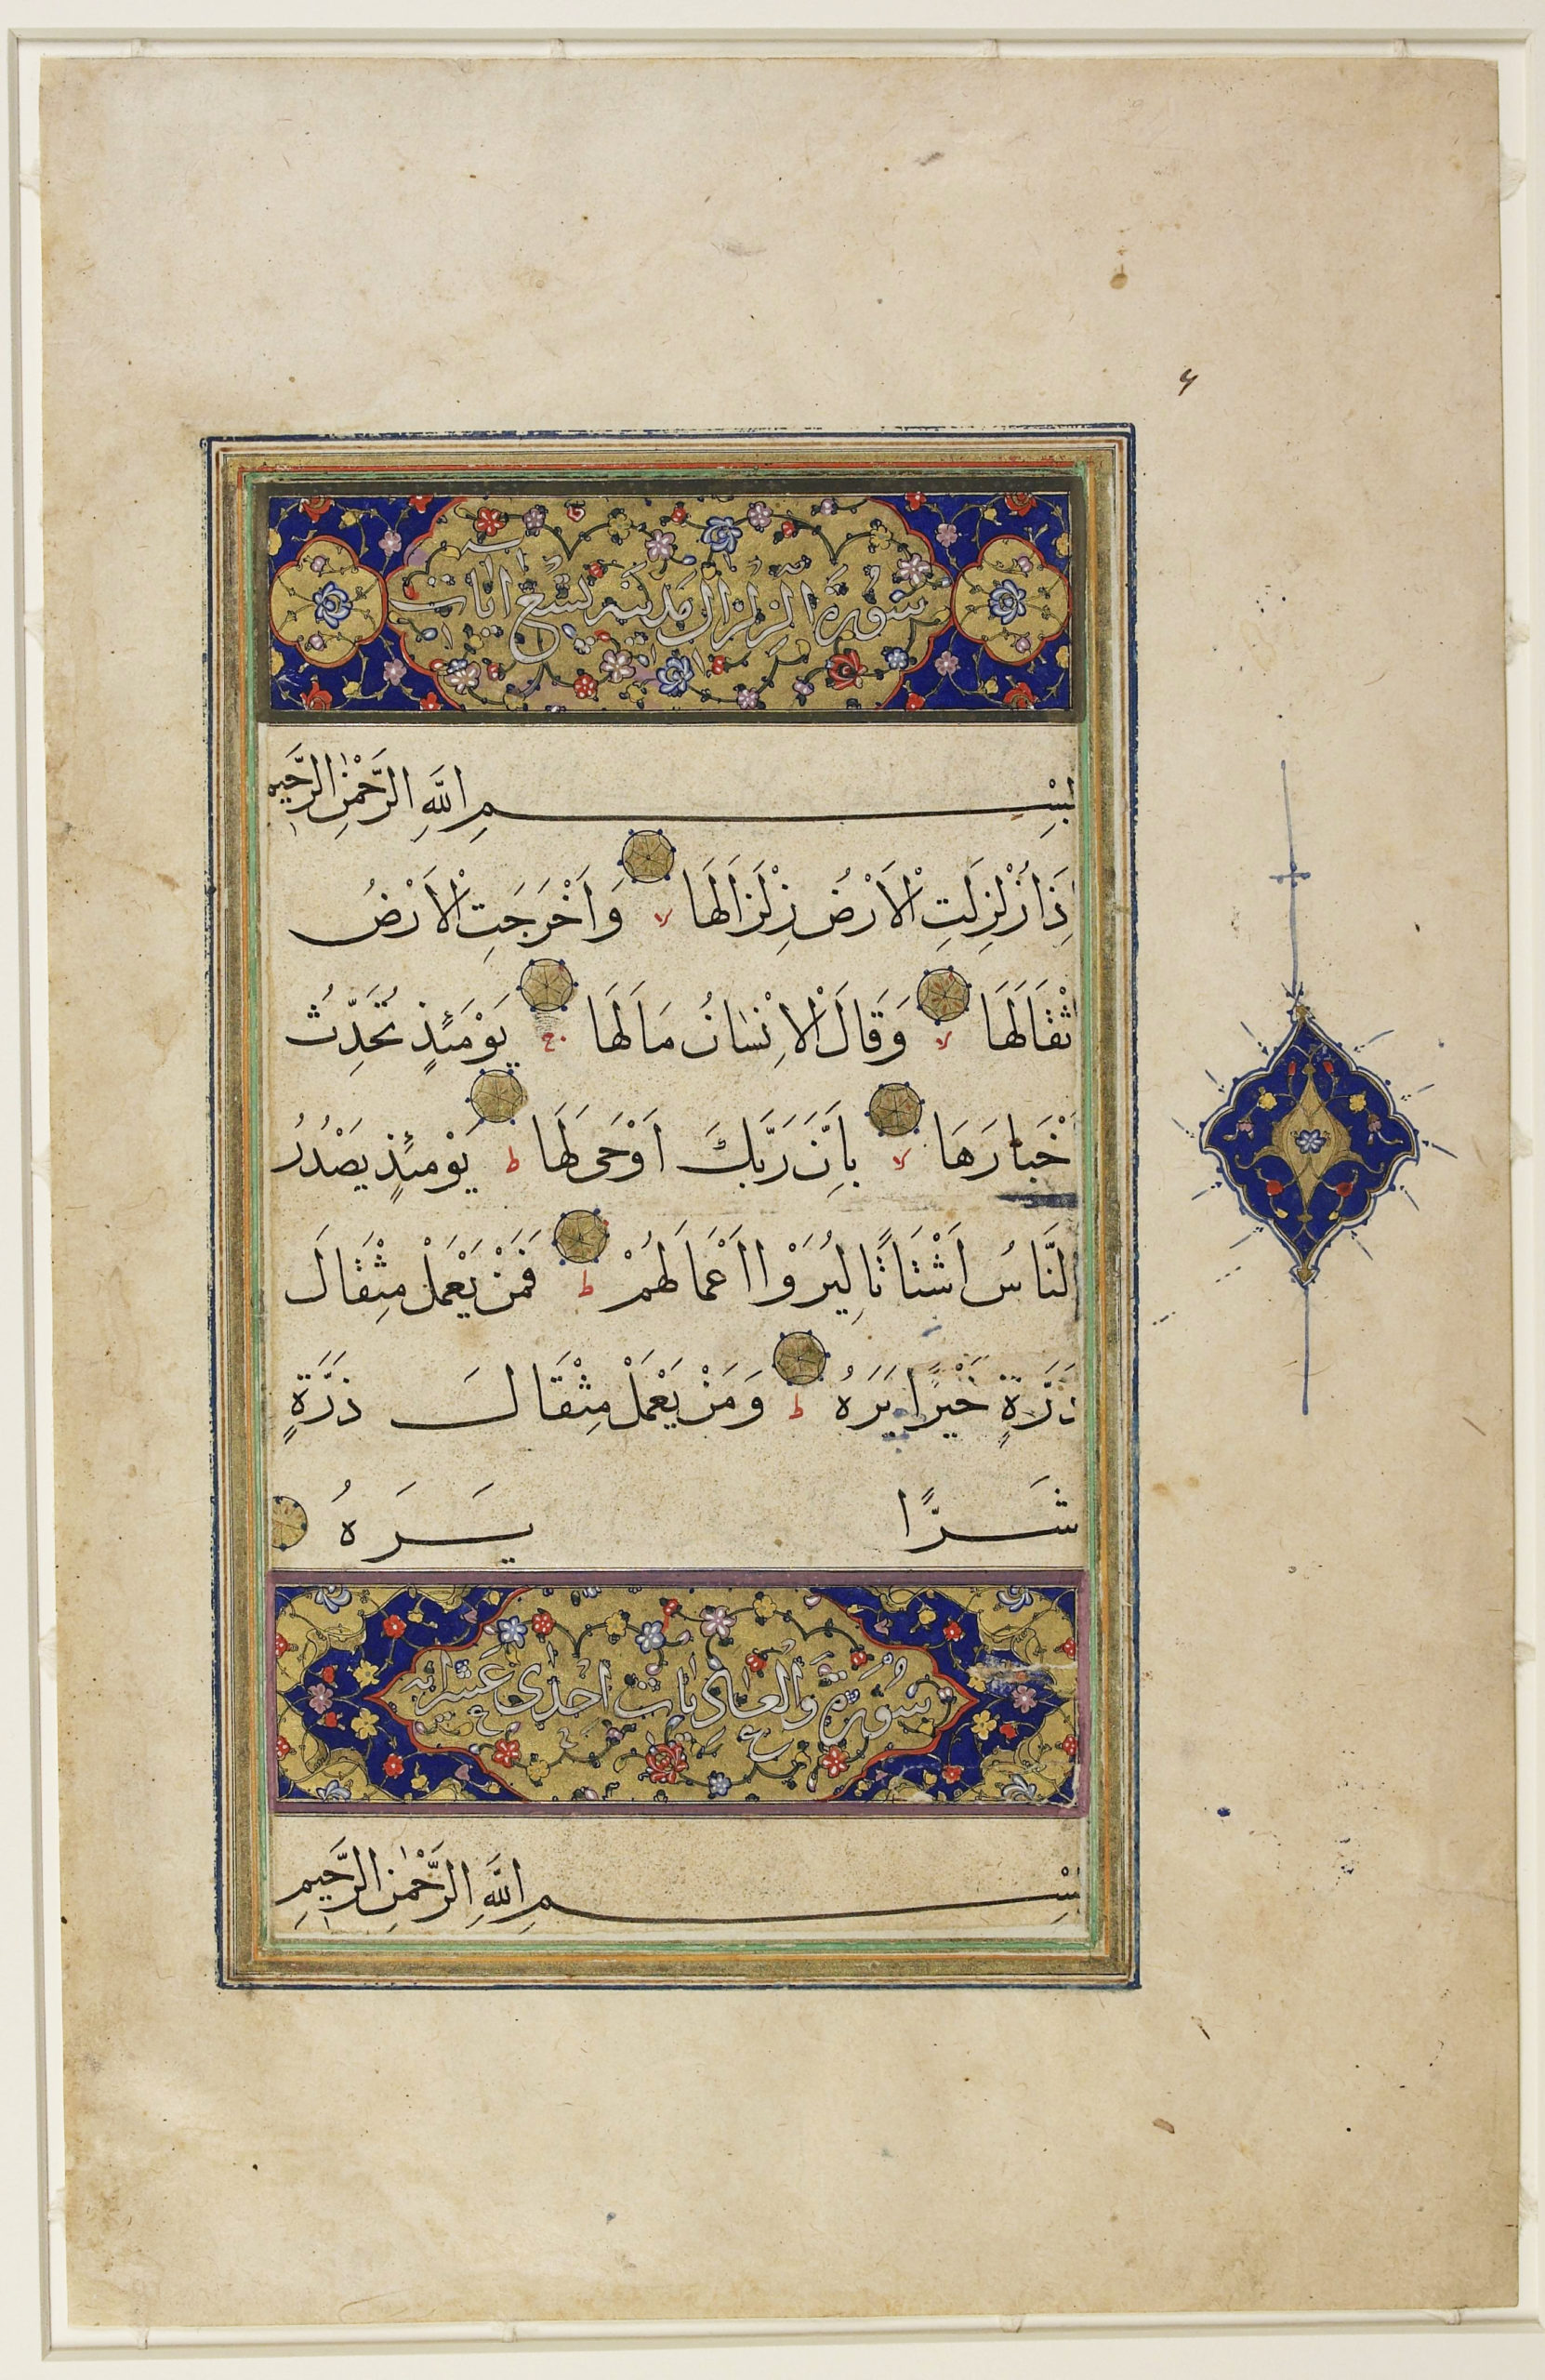 سُورَةُ الزِّلْزَالِ مَدَنِيَّة تِسْعُ اٰيَات
بِسْمِ اللَّهِ الرَّحْمٰنِ الرَّحِيمِ
اِذَا زُلْزِلَتِ الْاَرْضُ زِلْزَالَهَا لا وَاَخْرَجَتِ الْاَرْضُ
اَثْقَالَهَا لا وَقَالَ الْاِنْسَانُ مَا لَهَا ج يَوْمَئِذٍ تُحَدِّثُ
اَخْبَارَهَا لا بِاَنَّ رَبَّكَ اَوْحٰى لَهَا ط يَوْمَئِذٍ يَصْدُرُ
النَّاسُ اَشْتَاتًا لِيُرَوْا اَعْمَالَهُمْ ط فَمَنْ يَعْمَلْ مِثْقَالَ
ذَرَّةٍ خَيْرًا يَرَهُ ط وَمَنْ يَعْمَلْ مِثْقَالَ ذَرَّةٍ
شَرًّا يَرَهُ
سُورَةُ وَالْعَادِيَات اِحْدٰى عَشَر اٰيَة
بِسْمِ اللَّهِ الرَّحْمٰنِ الرَّحِيمِ